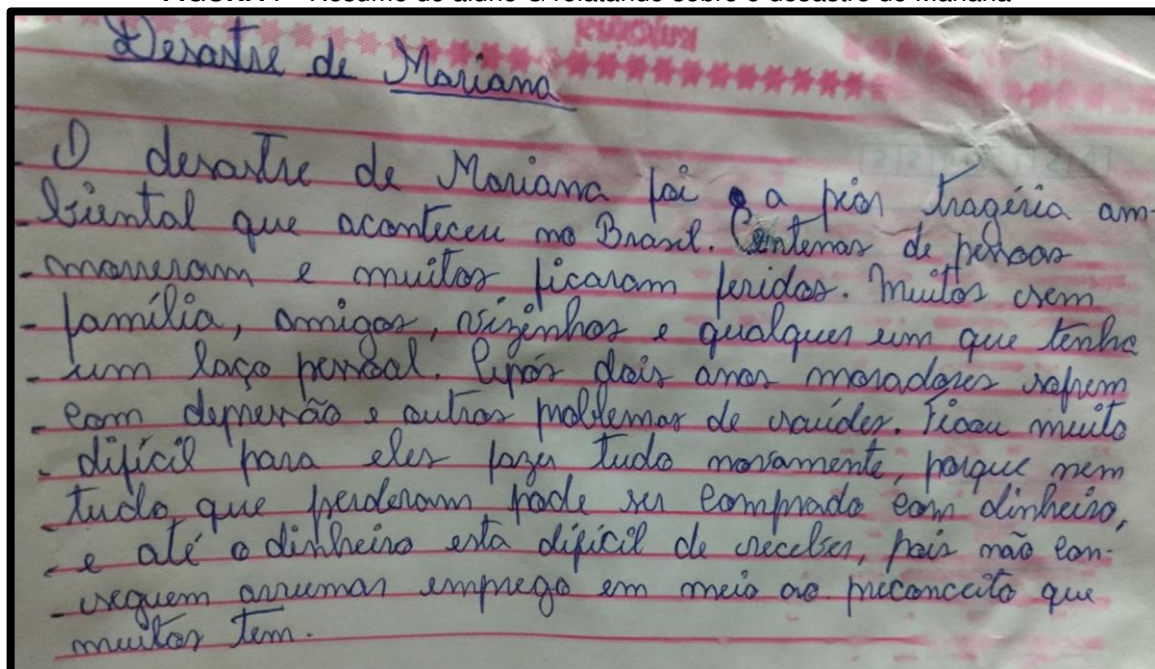 Desastre de Mariana
O desastre de Mariana foi a pior tragéria am-
biental que aconteceu no Brasil. Centenas de pessoas
morreram e muitos ficaram feridos. Muitos sem
família, amigos, vizinhos e qualquer um que tenha
um laço pessoal. Após dois anos moradores sofrem
com depressão e outros problemas de saúdes. Ficou muito
difícil para eles fazer tudo novamente, porque nem
tudo que perderam pode ser comprado com dinheiro,
e até o dinheiro esta difícil de receber, pois não con-
seguem arrumar emprego em meio ao preconceito que
muitos tem.